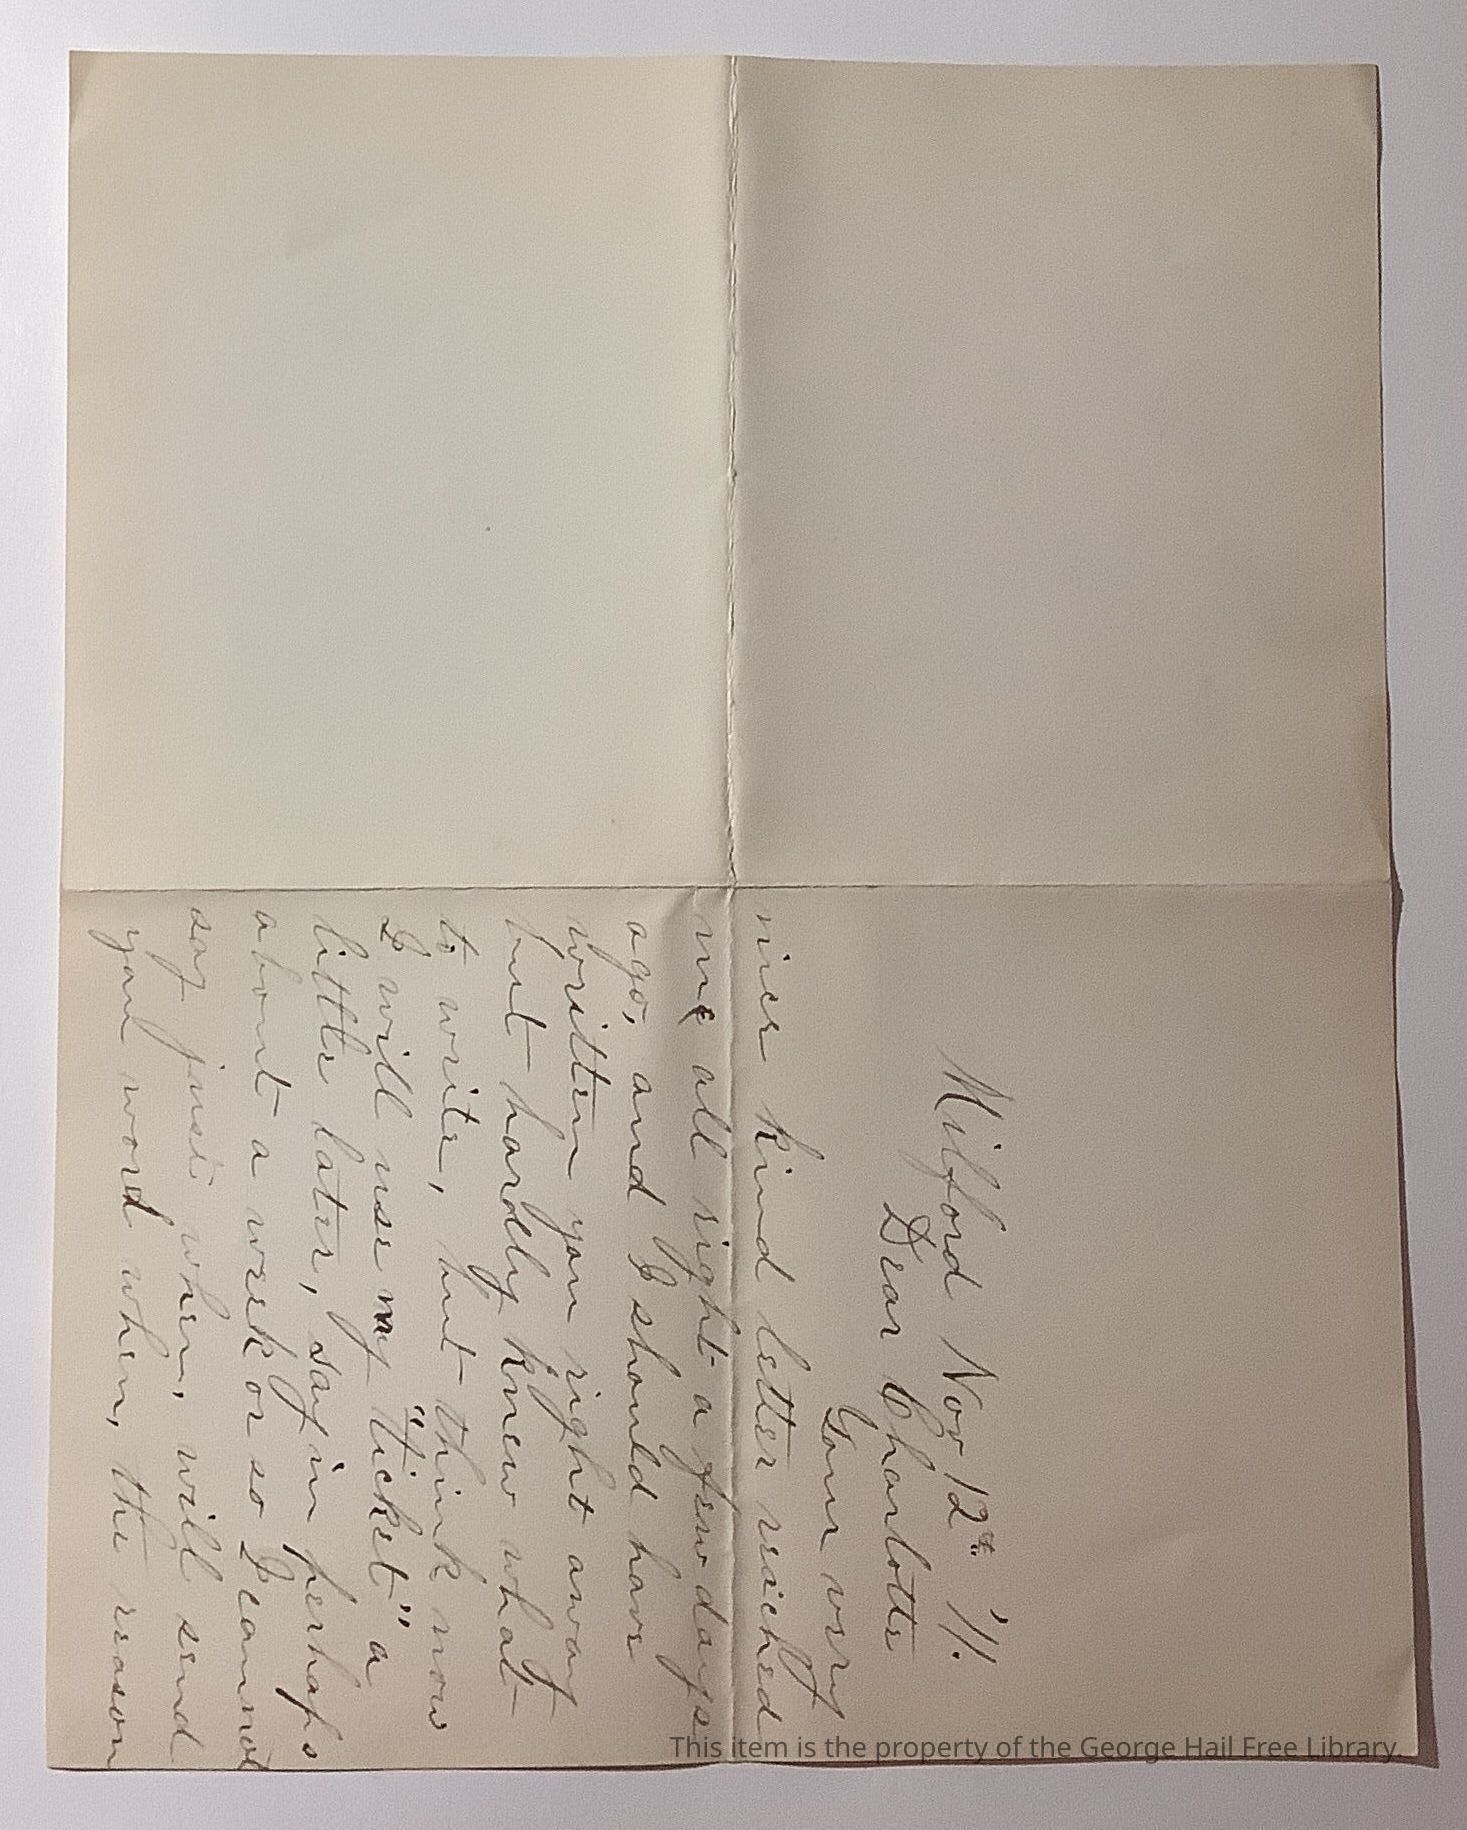 Milford Nov 12th '11.
Dear Charlotte
Your very
nice kind letter reached
me all right a few days
ago, and I should have
written you right away
but hardly knew what
to write, but think now
I will use my "ticket" a
little later, say in perhaps
about a week or so I cannot
say just when, will send
you word when, the reason
This item is the property of the George Hail Free Library.